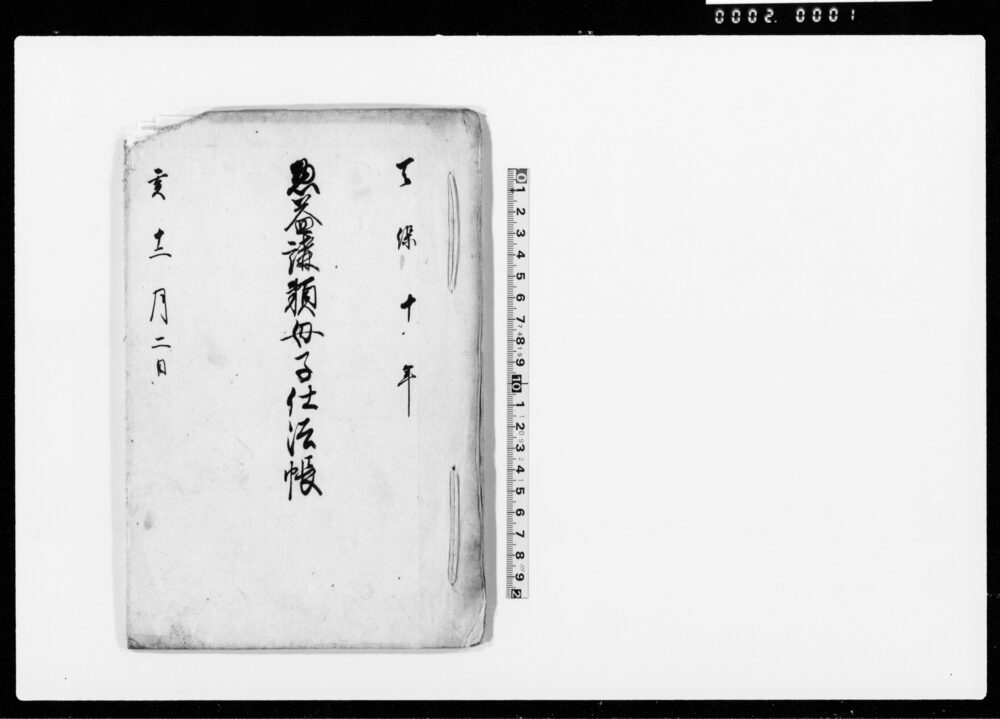 0002. 0001
天保十年
惣益講頼母子仕法帳
亥十二月二日
0 1 2 3 4 5 6 7 8 9 10 1 2 3 4 5 6 7 8 9 2